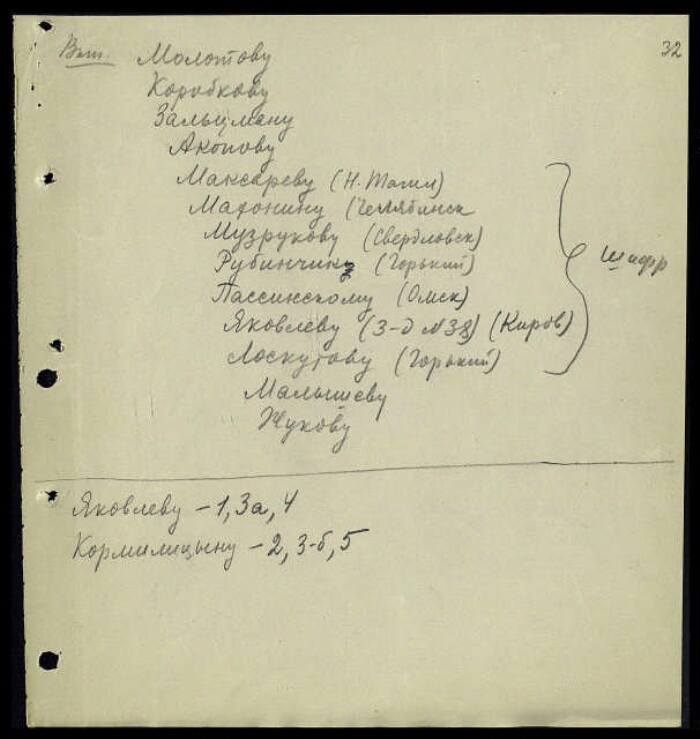 32
Вып. Молотову
Коробкову
Зальцману
Акопову
Максареву (Н. Тагил)
Махонину (Челябинск
Музрукову (Свердловск)
Рубинчику (Горький)
Пассинскому (Омск)
Яковлеву (З-д №38) (Киров)
Лоскутову (Горький)
Шифр
Малышеву
Жукову
Яковлеву – 1, 3а, 4
Кормилицыну – 2, 3-б, 5